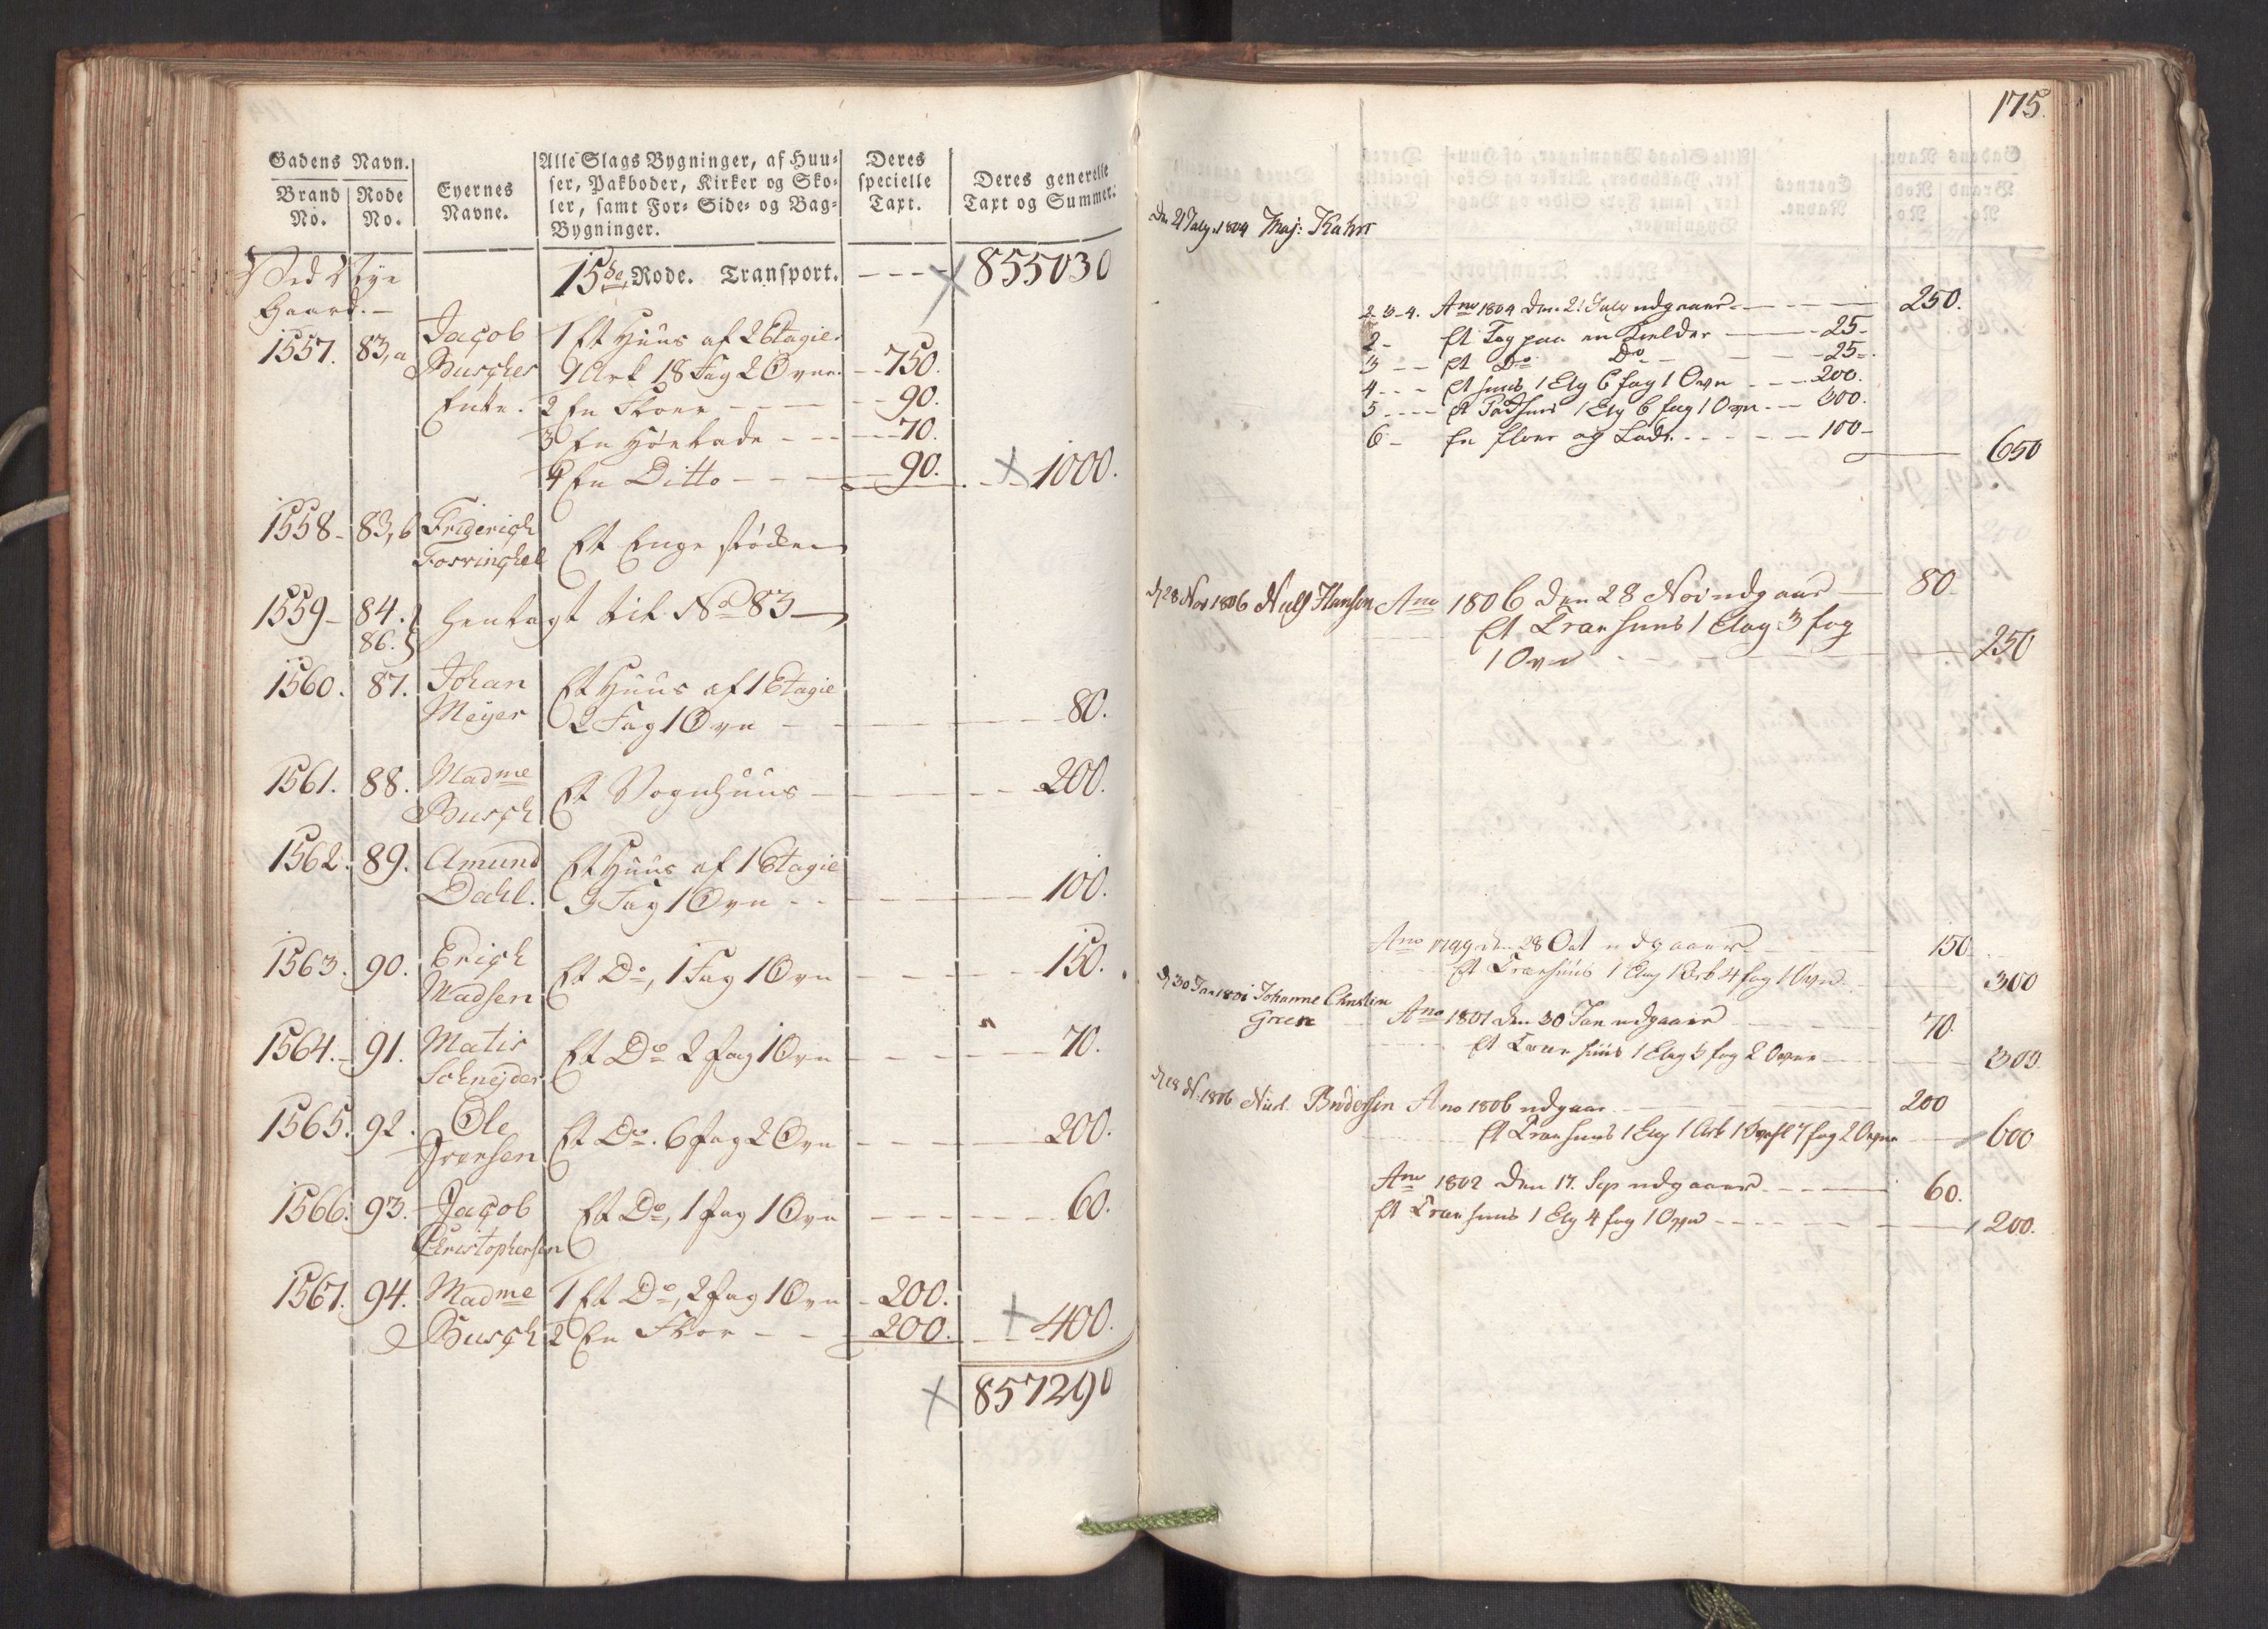 Gadens Navn.
Brand No. Rode No.
Eyernes Navne.
Alle Slags Bygninger, af Huu-
ser, Pakboder, Kirker og Sko-
ler, samt For- Side- og Bag-
Bygninger.
Deres specielle Taxt.
Deres generelle Taxt og Summer.
Ved Nye
Gaard.
15de Rode. Transport. 855030
1557. 83, a Jacob 1 Et Huus af 2 Etagie
Buscher 1 Ark 18 Fag 2 Ovne 750.
Enke. 2 En Floer 90.
3 En Høelade 70.
4 En Ditto 90. 1000.
1558 83, b Friderich
Forringhel Et Enge støcke
1559 84. henlagt til No 83
86.
1560. 87. Johan Et Huus af 1 Etagie
Meyer 2 Fag 1 Ovn 80.
1561. 88. Madme
Busch Et Vognhuus 200.
1562. 89. Amund Et Huus af 1 Etagie
Dahl. 3 Fag 1 Ovn 100.
1563. 90. Erich
Madsen Et Do, 1 Fag 1 Ovn 150.
1564. 91. Matis
Schneyder Et Do 2 fag 1 Ovn 70.
1565. 92. Ole
Iversen Et Do. 6 fag 2 Ovn 200.
1566. 93. Jacob Et Do, 1 fag 1 Ovn 60.
Christophersen
1567. 94. Madme 1 Et Do, 2 fag 1 Ovn 200.
Busch 2 En Floer 200. 400.
857290
175.
Den 21 July 1804 Maj: Kahrs
2-3-4. Ano 1804 den 21 July udgaaer 250.
2 Et Tag paa en Kielder 25
3 Et Do Do 25
4 Et huus 1 Etg 6 fag 1 Ovn 200.
5 1 Etg 6 fag 1 Ovn 300.
6 En floer og Lade 100
650
d 28 Nov 1806 Niels Hansen Ano 1806 den 28 Nov udgaar 80
Et Træehuus 1 Etag 3 fag
1 Ovn 250
Ano 1799 den 28 Oct udgaaer 150
Et Træehuus 1 Etag 1 Ark 4 fag 1 Ovn 300
d 30 Jan 1801 Johanne Christine
Green Ano 1801 den 30 Jan udgaaer 70
Et Træehuus 1 Etag 5 fag 2 Ovne 300
d 28 N. 1806 Brodersen Ano 1806 udgaar 200
Et Træehuus 1 Etg 1 Ark 1 7 fag 2 Ovne 600
Ano 1802 den 17. Sep udgaaer 60.
Et Træehuus 1 Etg 4 fag 1 Ovn 200.